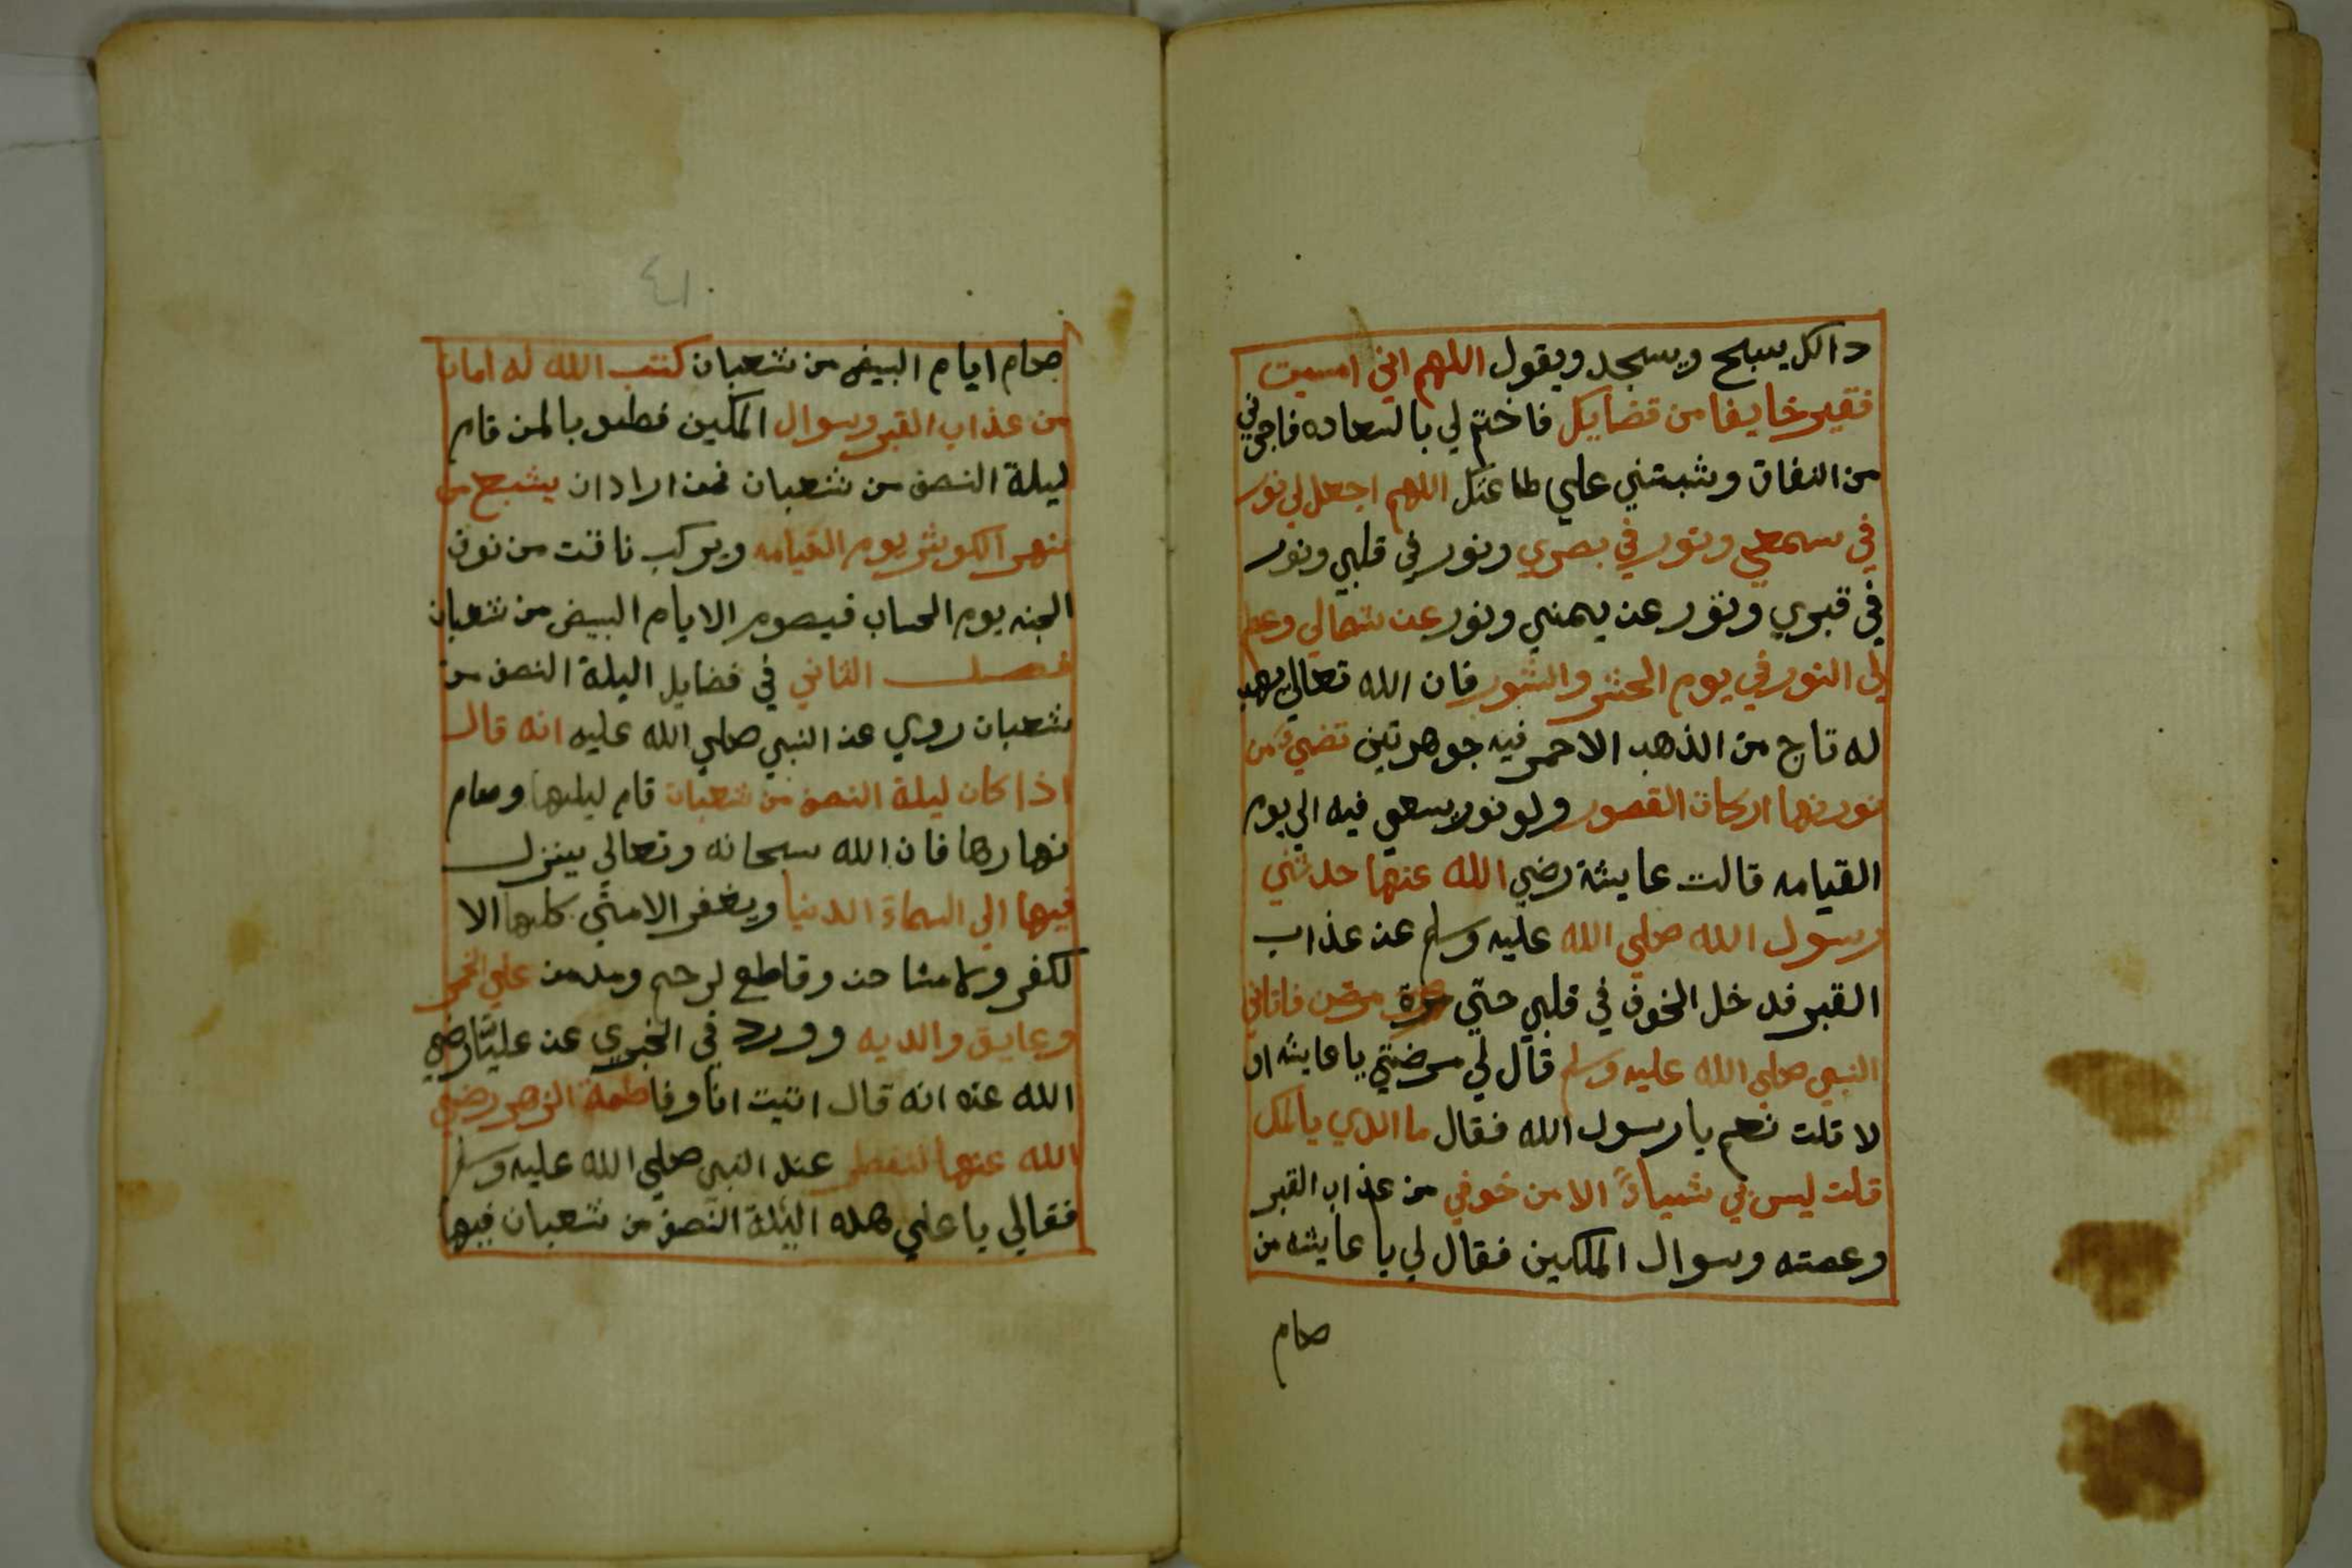 دالك يسبح ويسجد ويقول اللهم اني امسيت
فقير خايفا من قضايك فاختم لي بالسعاده فاجرني
من النفاق وثبتني علي طاعتك اللهم اجعل لي نور
في سمعي ونور في بصري ونور في قلبي ونور
في قبري ونور عن يمني ونور عن شمالي وعلم
لي النور في يوم الحشر والنشور فان الله تعالي يهب
له تاج من الذهب الاحمر فيه جوهرتين تضيء من
نورنهما اركان القصور ولو نور يسعي فيه الي يوم
القيامه قالت عايشة رضي الله عنها حدثني
رسول الله صلي الله عليه وسلم عن عذاب
القبر فدخل الخوف في قلبي حتي مرضن فاتاني
النبي صلي الله عليه وسلم قال لي مرضتي يا عايشه ام
لا قلت نعم يا رسول الله فقال ما الذي يالمك
قلت ليس بي شيياءً الا من خوفي من عذاب القبر
وعصته وسوال الملكين فقال لي يا عايشه من
صام
٤١
صام ايام البيض من شعبان كتب الله له امان
من عذاب القبر وسوال الملكين فطوبا لمن قام
ليلة النصف من شعبان فمن اراد ان يشبع من
نهر الكوثر يوم القيامه ويركب ناقت من نوق
الجنه يوم الحساب فيصوم الايام البيض من شعبان
فصل الثاني في فضايل اليلة النصف من
شعبان روي عن النبي صلي الله عليه انه قال
اذا كان ليلة النصف من شعبان قام ليلها وصام
نهارها فان الله سبحانه وتعالي ينزل
فيها الي السماء الدنيا ويغفر الامتي كلها الا
لكفر ولا مشاحن وقاطع لرحم ومدمن علي الخمر
وعايق والديه وورد في الخبري عن عليًا رضي
الله عنه انه قال اتيت انا وفاطمة الزهر رضي
الله عنها لنفطر عند النبي صلي الله عليه وسلم
فقالي يا علي هذه اليلة النصف من شعبان فيها